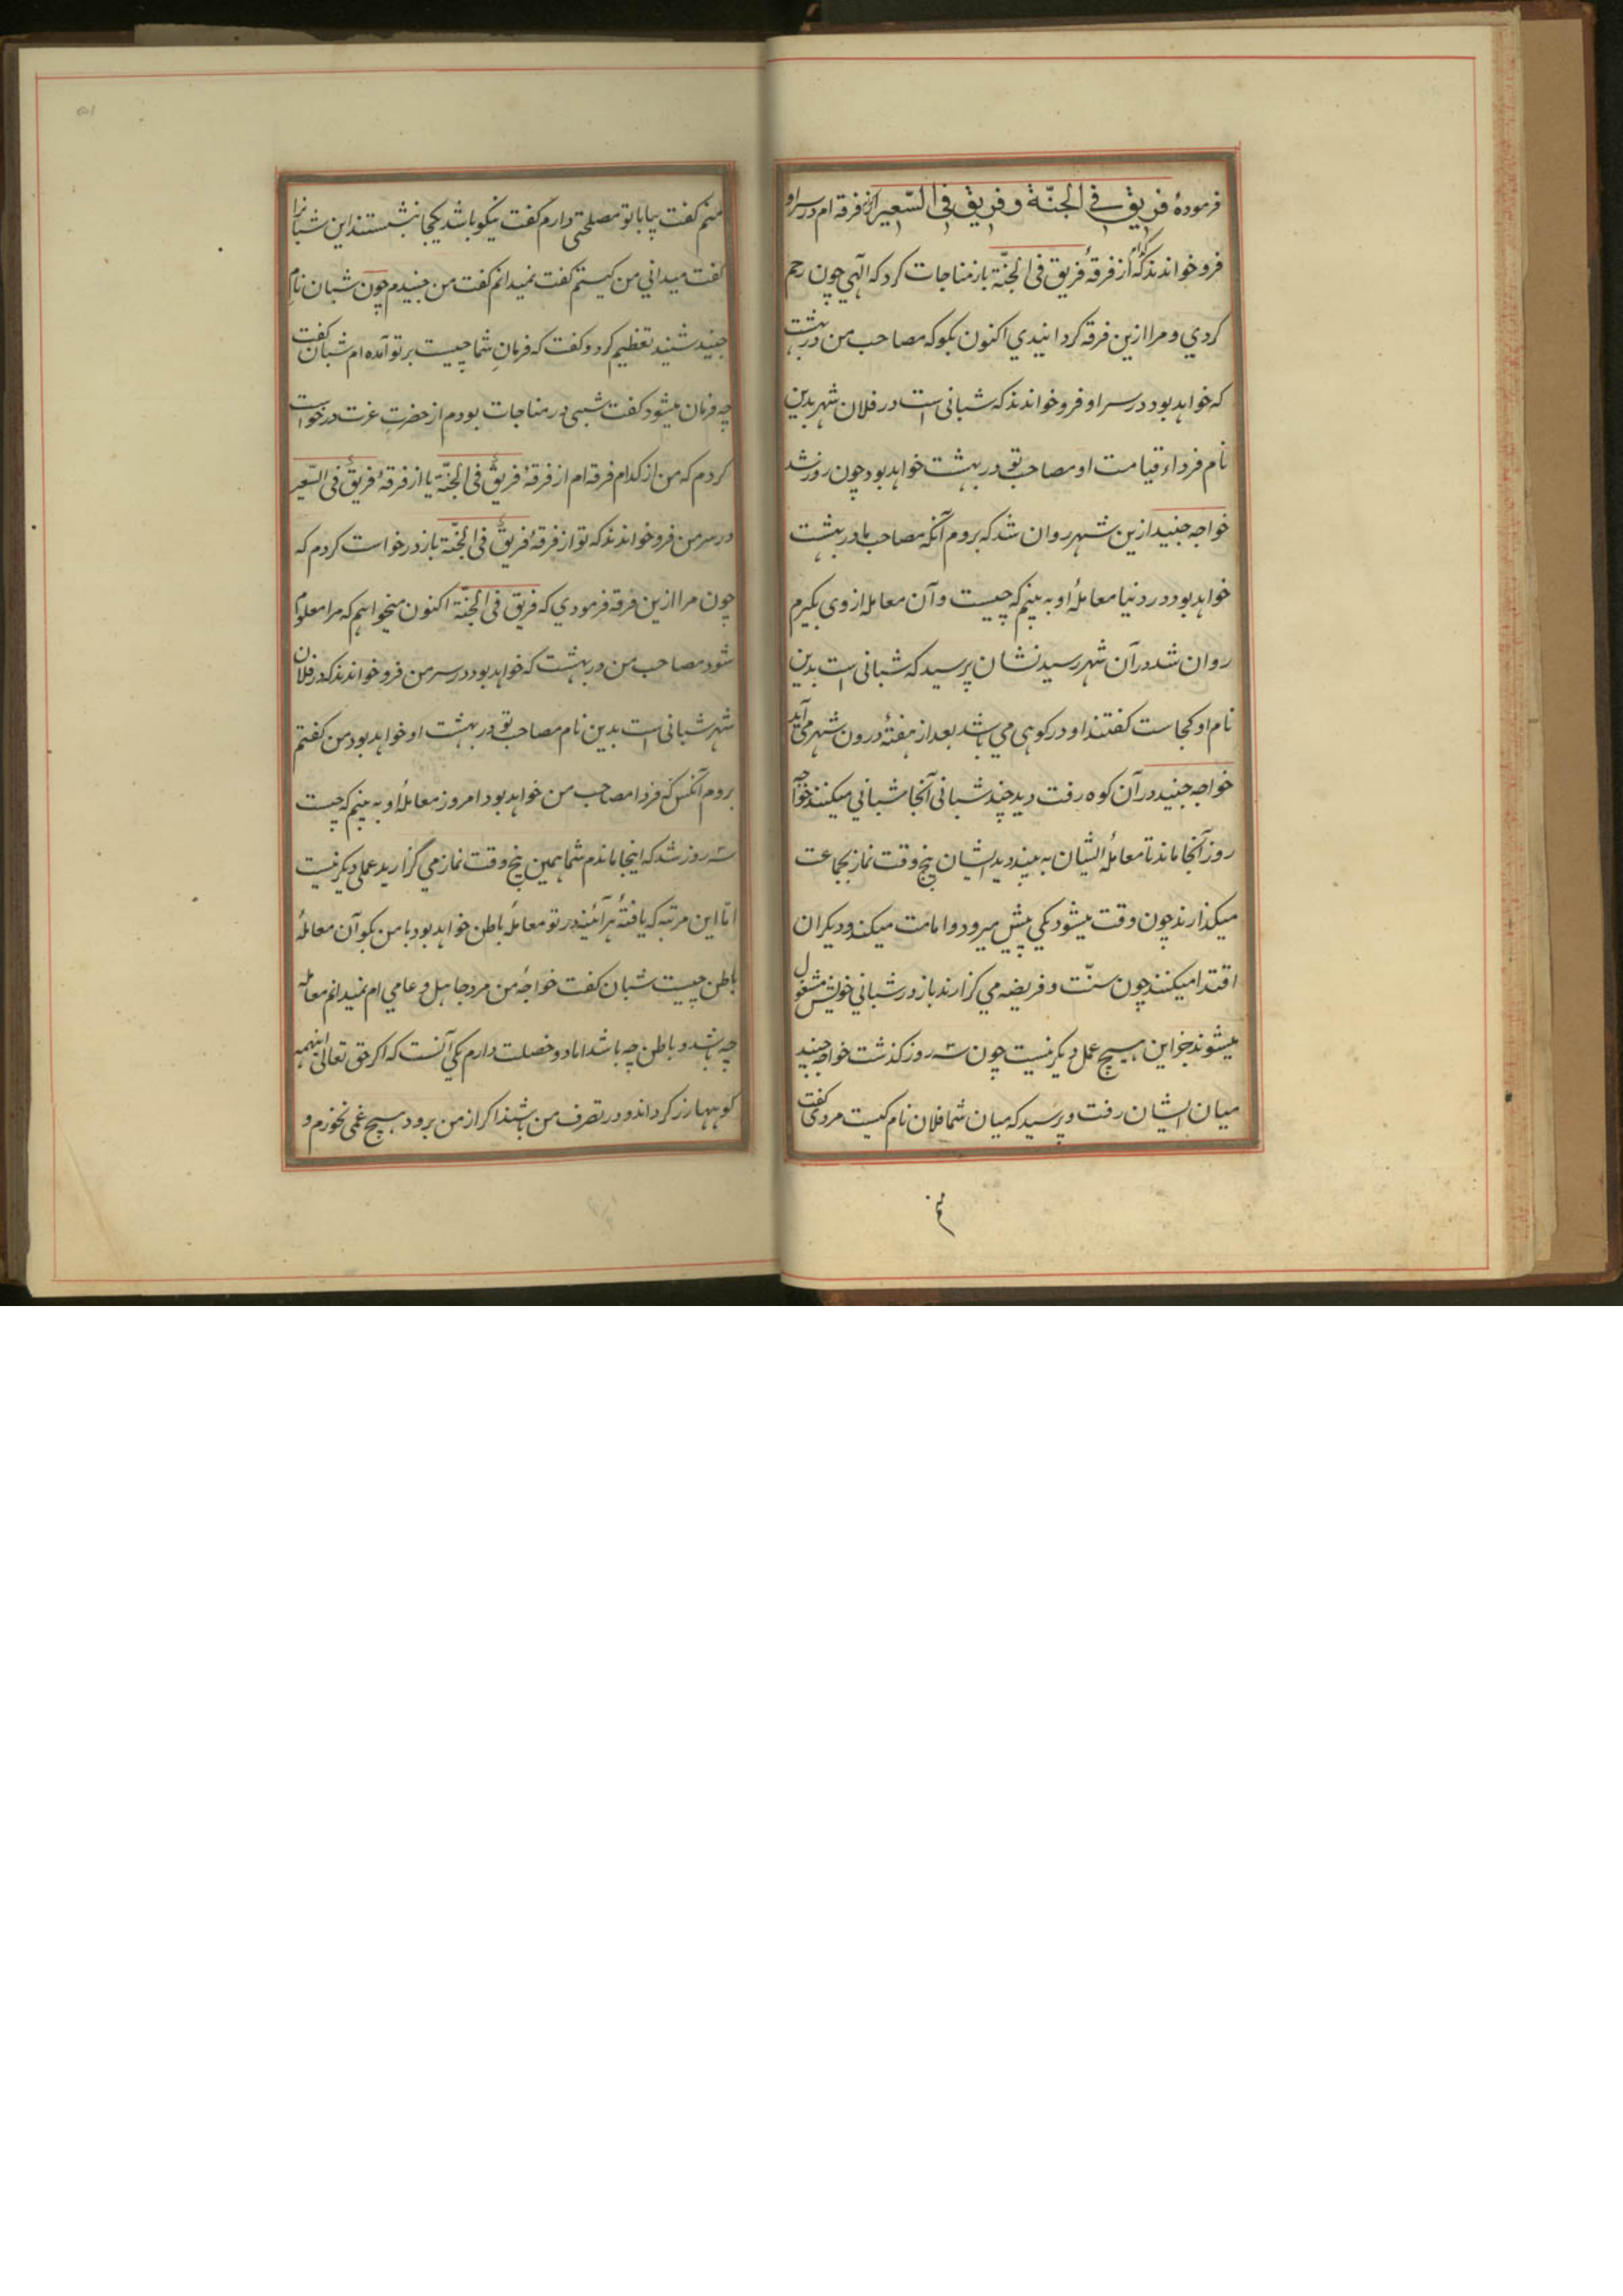 فرمودهٔ فریق فی الجنّة و فریق فی السّعیر ازین فرقه ام در سر او
فرو خواندند که تو از فرقهٔ فریق فی الجنّة باز مناجات کرد که الٓهی چون رحم
کردي و مرا ازین فرقه کردانیدي اکنون بکو که مصاحب من در بهشت
که خواهد بود در سر او فرو خواندند که شبانی است در فلان شهر بدین
نام فرداء قیامت او مصاحب تو در بهشت خواهد بود چون روز شد
خواجه جنید ازین شهر روان شد که بروم آنکه مصاحب ما در بهشت
خواهد بود در دنیا معاملهٔ او به بینم که چیست و آن معامله از وی بکیرم
روان شد در آن شهر رسید نشان پرسید که شبانی است بدین
نام او کجاست کفتند او در کوهی می باشد بعد از هفتهٔ درون شهر می آید
خواجه جنید در آن کوه رفت دید چند شبانی آنجا شبانی میکنند خواجه
روز آنجا ماند تا معاملهٔ ایشان به بیند دید ایشان پنج وقت نماز بجماعت
میکذارند چون وقت میشود یکی پیش میرود و امامت میکند و دیکران
اقتدا میکنند چون سنّت و فریضه می کزارند باز در شبانی خویش مشغول
میشوند جز این هیچ عمل دیکر نیست چون سه روز کذشت خواجه جنید
میان ایشان رفت و پرسید که میان شما فلان نام کیست مردی کفت
منم
منم کفت بیا با تو مصلحتی دارم کفت نیکو باشد یکجا نشستند این شبانرا
کفت میدانی من کیستم کفت نمیدانم کفت من جنیدم چون شبان نام
جنید شنید تعظیم کرد و کفت که فرمانِ شما چیست بر تو آمده ام شبان کفت
چه فرمان میشود کفت شبی در مناجات بودم از حضرتِ عزت درخواست
کردم که من از کدام فرقه ام از فرقهٔ فریقٌ فی الجنّة یا از فرقهٔ فریقٌ فی السّعیر
در سر من فرو خواندند که تو از فرقهٔ فریقٌ فی الجنّة باز درخواست کردم که
چون مرا ازین فرقه فرمودي که فریق فی الجنّة اکنون میخواهم که مرا معلوم
شود مصاحب من در بهشت که خواهد بود در سر من فرو خواندند که در فلان
شهر شبانی است بدین نام مصاحب تو در بهشت او خواهد بود من کفتم
بروم آنکس که فردا مصاحب من خواهد بود امروز معاملهٔ او به بینم که چیست
سه روز شد که اینجا ماندم شما همین پنج وقت نماز می گزارید عملی دیکر نیست
امّا این مرتبه که یافتهٔ هر آئینه در تو معاملهٔ باطن خواهد بود با من بکو آن معاملهٔ
باطن چیست شبان کفت خواجه من مرد جاهل و عامی ام نمیدانم معامله
چه باشد و باطن چه باشد اما دو خصلت دارم یکی آنست که اکر حق تعالی اینهمه
کوهها زر کرداند و در تصرف من باشند اکر از من برود هیچ غمی نخورم و